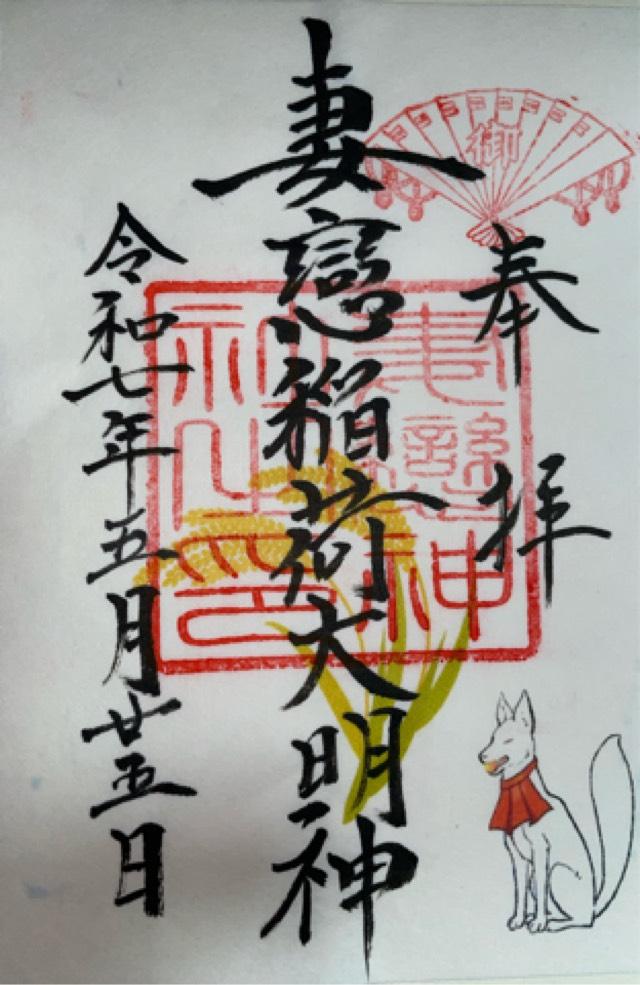 奉拝
妻戀稲荷大明神
令和七年五月廿五日
御
妻戀神
社之印